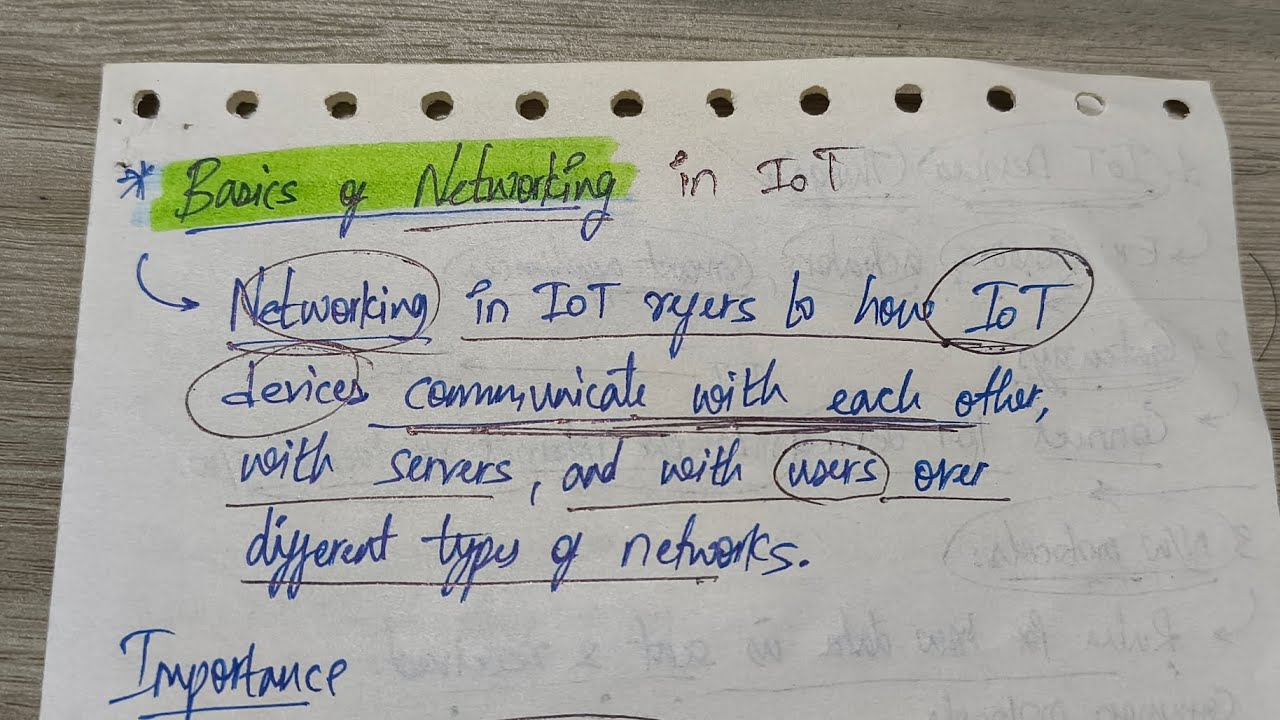 * Basics of Networking in IoT
Networking in IoT refers to how IoT
devices communicate with each other,
with servers, and with users over
different types of networks.
Importance